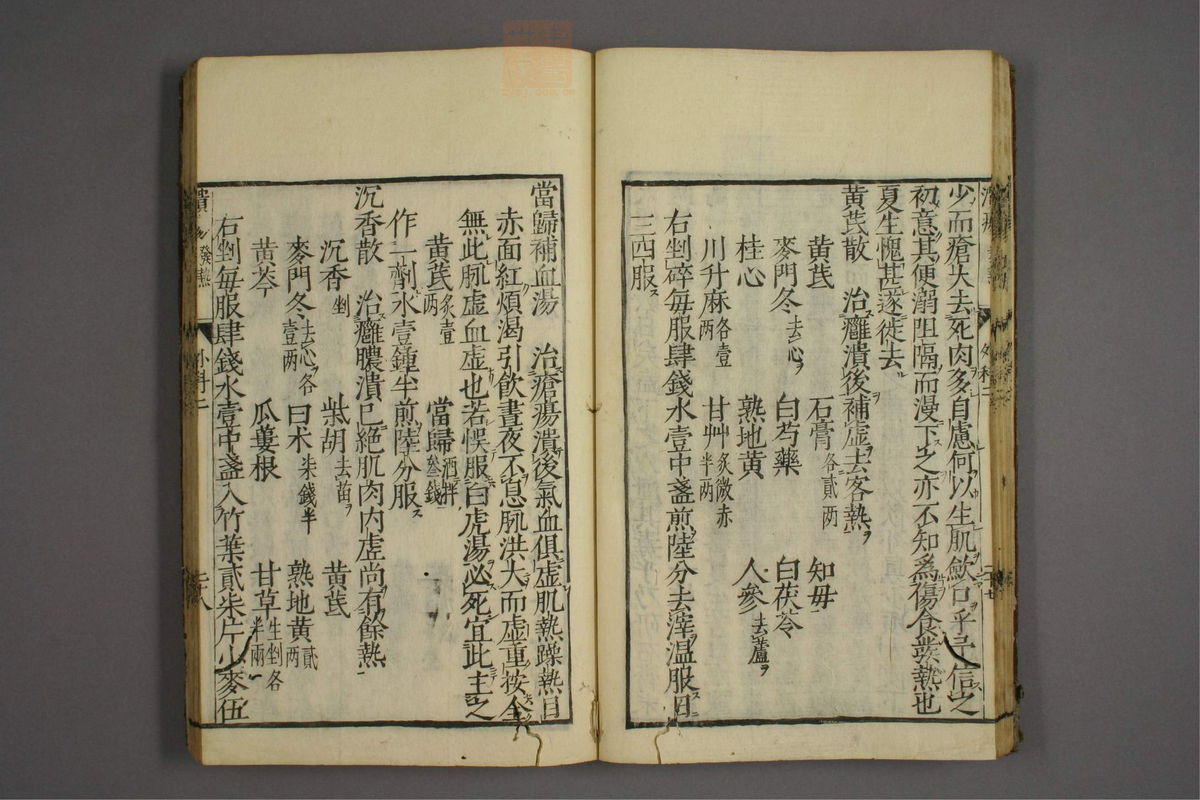 少而瘡大去死肉多自慮何以生肌歛口乎予信之
初意其便溺阻隔而漫下之亦不知爲傷食發熱也
夏生愧甚遂徙去
黄茋散　治癰潰後補虚去客熱
黄茋　石膏各貳两　知毋
麥門冬去心　白芍藥　白茯苓
桂心　熟地黄　人參去蘆
川升麻各壹两　甘艸炙微赤半两
右剉碎毎服肆錢水壹中盞煎陸分去滓温服日
三四服
當歸補血湯　治瘡瘍潰後氣血俱虚肌熱躁熱目
赤面紅煩渴引飲晝夜不息脈洪大而虚重按全
無此脈虚血虚也若悞服白虎湯必死宜此主之
黄茋炙壹两　當歸酒拌叄錢
作一劑水壹鍾半煎陸分服
沉香散　治癰膿潰已絶肌肉内虚尚有餘熱
沉香剉　柴胡去苗　黄茋
麥門冬去心各壹两　白术柒錢半　熟地黄貳两
黄芩　瓜蔞根　甘草生剉各半兩
右剉毎服肆錢水壹中盞入竹葉貳柒片小麥伍
潰瘍發熱
外科二
二十八